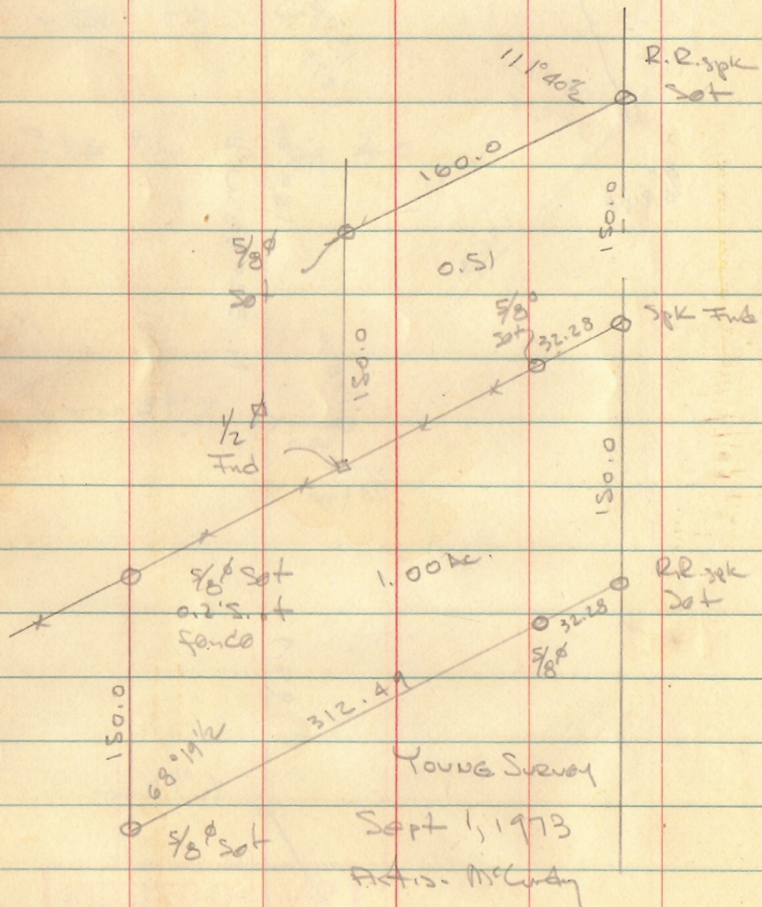 111°40½
R.R.spk
Set
160.0
150.0
5/8ø
Set
0.51
5/8ø
set
32.28
Spk Fnd
150.0
1/2ø
Fnd
150.0
5/8ø Set
0.2'S. of
fence
1.00 Ac.
R.R.spk
Set
32.28
5/8ø
150.0
312.49
68°19½
5/8ø Set
Young Survey
Sept 1, 1973
McCurdy